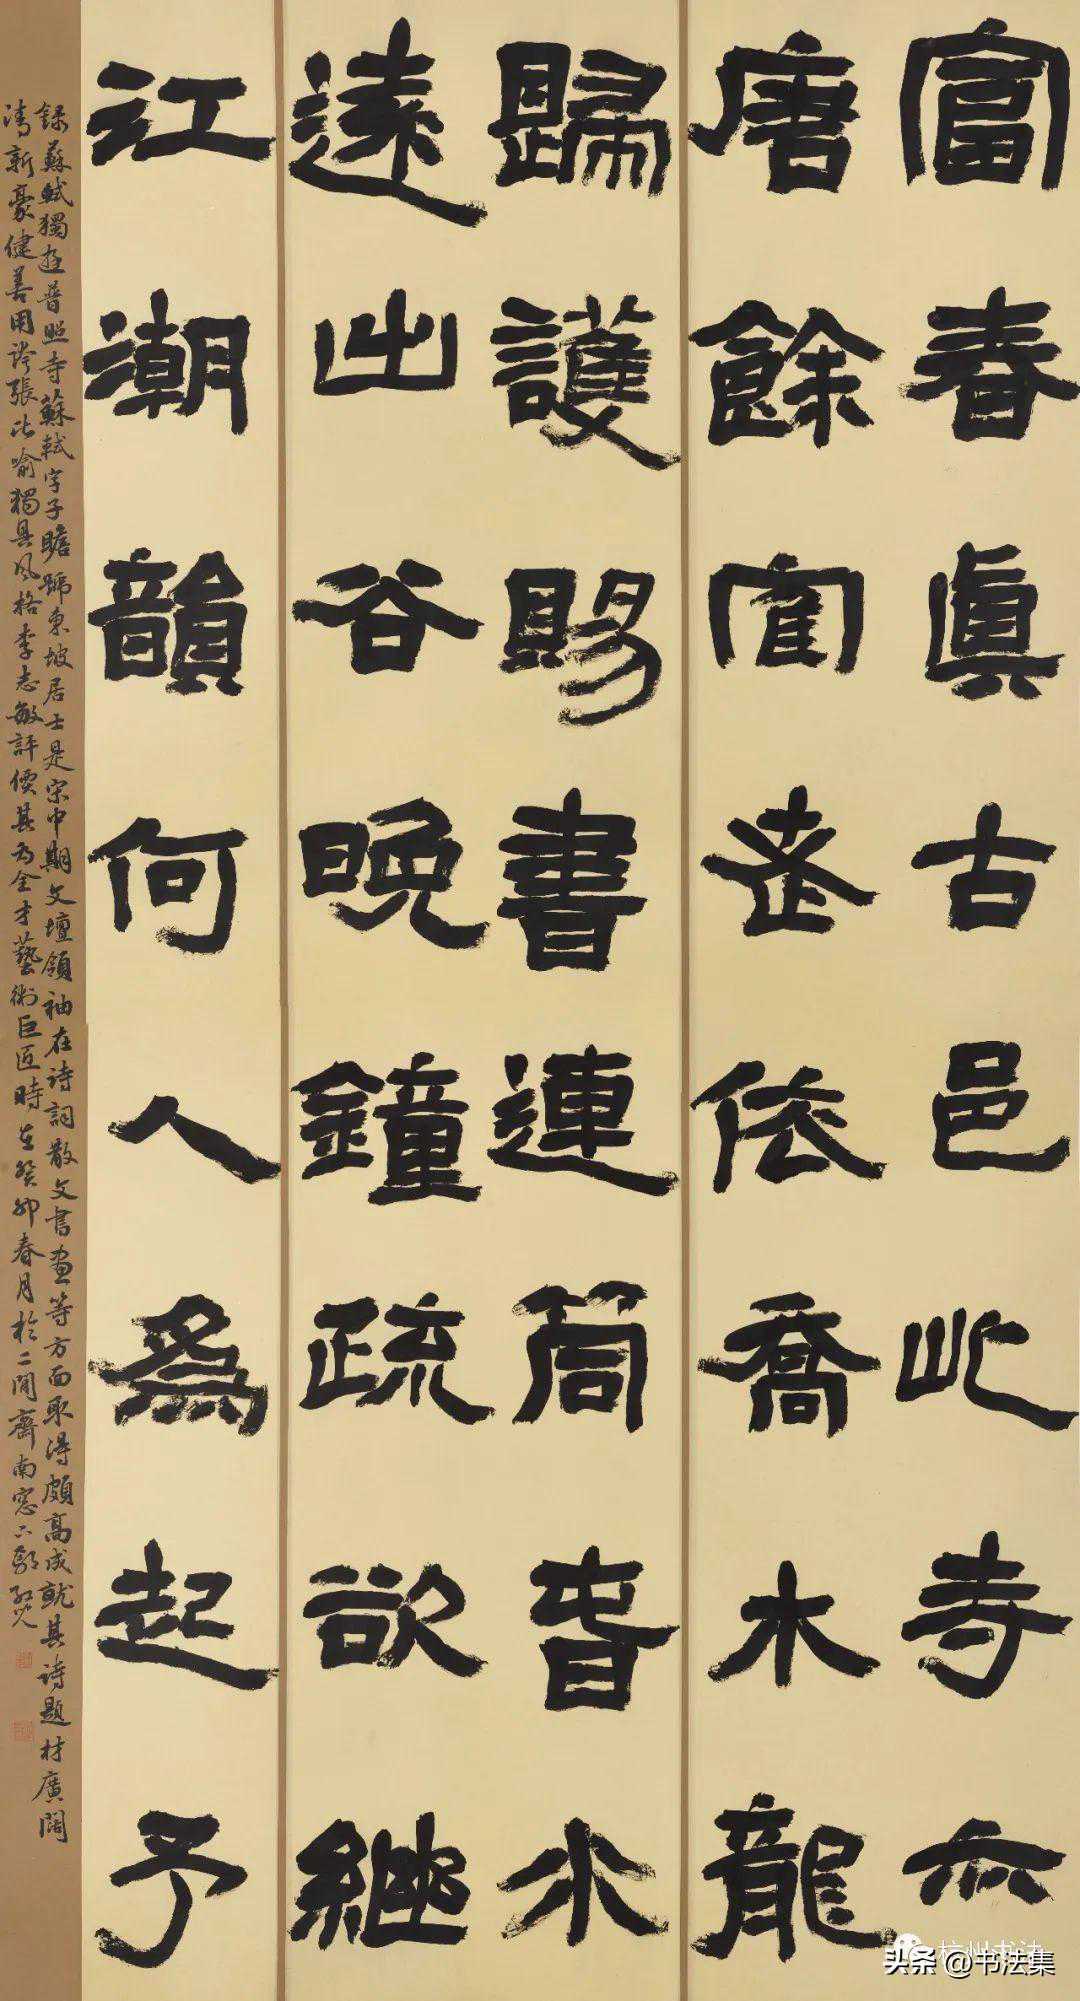 富春眞古邑此寺亦
唐餘寉老依喬木龍
歸護賜書連筒春水
遠出谷晚鐘疏欲繼
江潮韻何人為起予
錄蘇軾獨遊普照寺蘇軾字子瞻號東坡居士是宋中期文壇領袖在詩詞散文書畫等方面取得頗高成就其詩題材廣闊
清新豪健善用誇張比喻獨具風格李志敏評價其為全才藝術巨匠時在癸卯春月於二閒齋南窓下
杭州书法
头条 @书法集